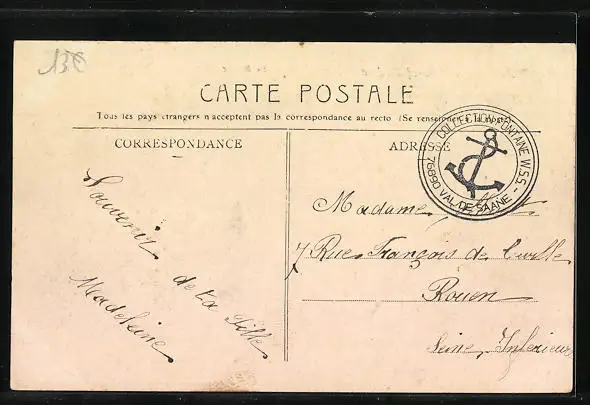 13€
CARTE POSTALE
Tous les pays étrangers n'acceptent pas la correspondance au recto (Se renseigner à la poste)
CORRESPONDANCE
ADRESSE
COLLECTION FONTAINE W.S.S. -
76890 VAL DE SAANE -
Souvenir
de ta fille
Madeleine
Madame
7 Rue François de Curlle
Rouen
Seine Inferieure